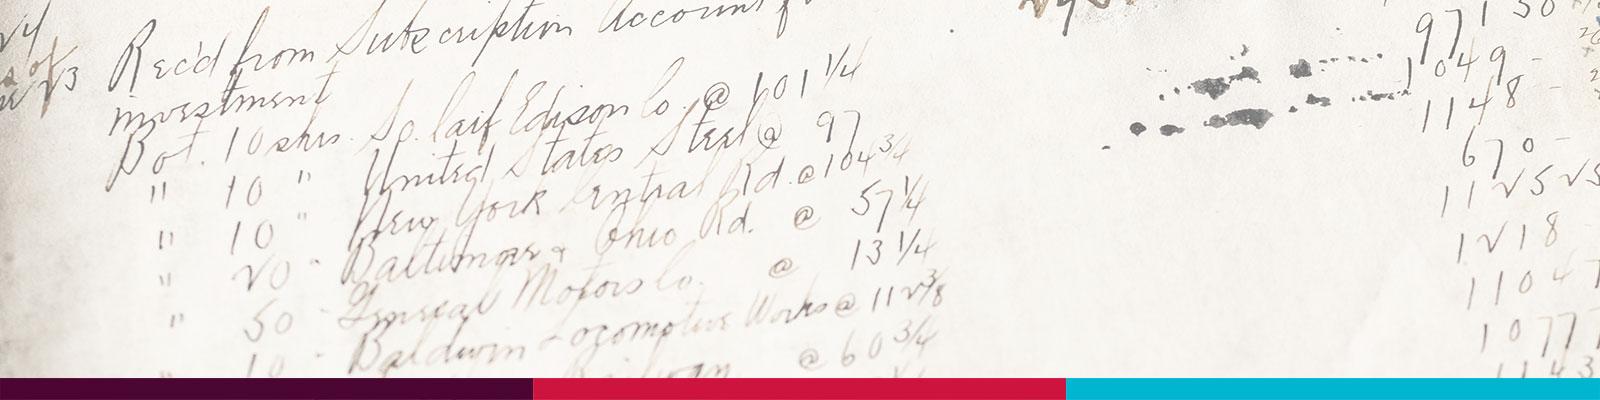 Rec'd from Subscription Account f
investment 97150
Bot. 10 shrs. So. Calif Edison Co. @ 101 1/4 1049 -
" 10 " United States Steel @ 97 1148 -
" 10 " New York Central Rd. @ 104 3/4 670 -
" 20 " Baltimore & Ohio Rd. @ 57 1/4
" 50 " General Motors Co. @ 13 1/4 1218
10 " Baldwin Locomotive Works @ 112 3/8 1104
@ 60 3/4 1077